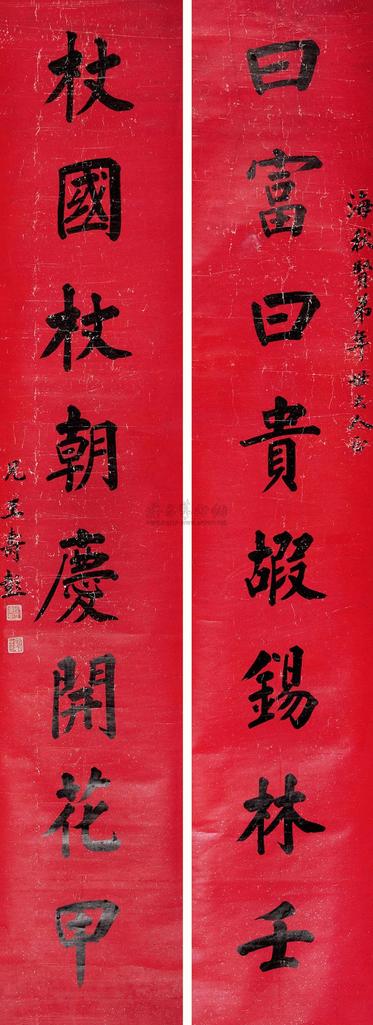 海秋賢弟年世大人
曰富曰貴嘏錫林壬
杖國杖朝慶開花甲
兄王壽彭